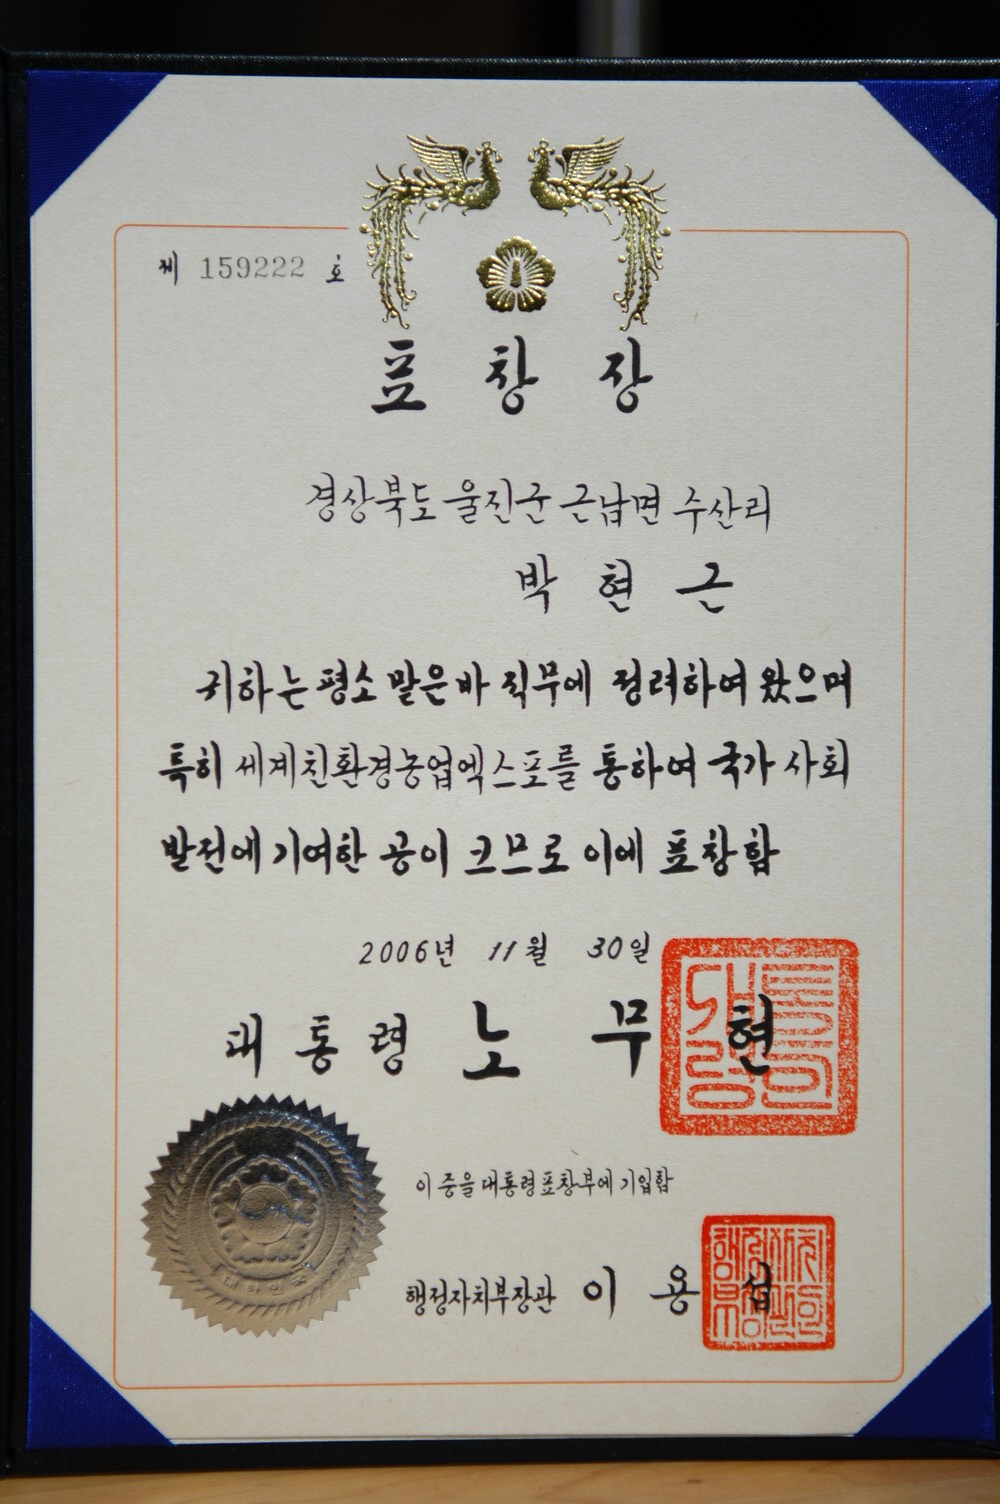 제 159222 호
표창장
경상북도 울진군 근남면 수산리
박현근
귀하는 평소 맡은 바 직무에 정려하여 왔으며
특히 세계친환경농업엑스포를 통하여 국가 사회
발전에 기여한 공이 크므로 이에 표창함
2006년 11월 30일
대통령 노무현
대통령의인
이 증을 대통령표창부에 기입함
행정자치부장관 이용섭
대한민국